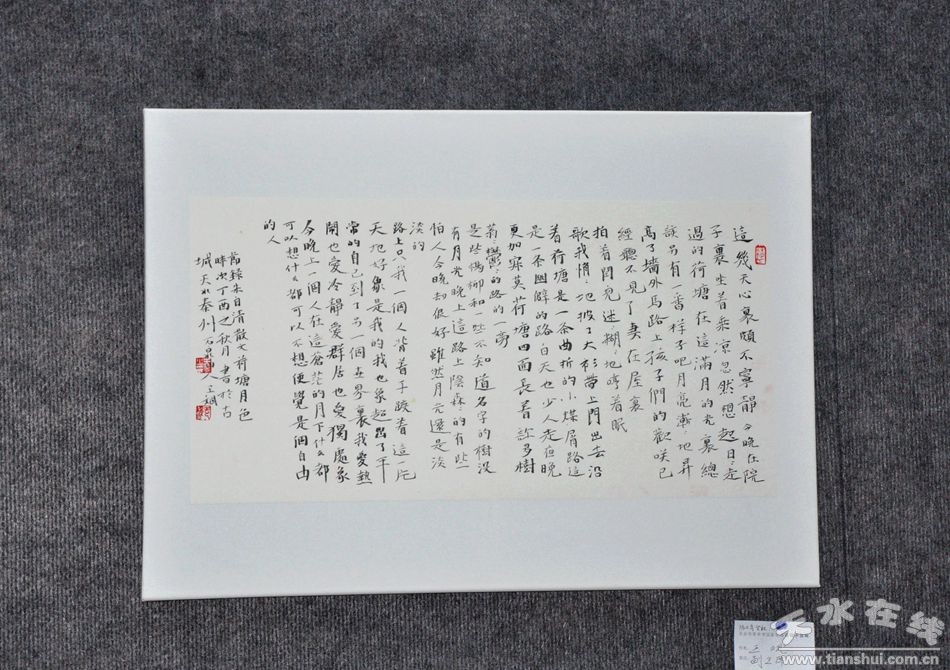 這幾天心裏頗不寧靜今晚在院
子裏坐着乘凉忽然想起日:走
過的荷塘在這滿月的光裏總
該另有一番樣子吧月亮漸:地昇
高了墙外馬路上孩子們的歡咲已
經聽不見了妻在屋裏
拍着閏兒迷:糊:地哼着眠
歌我悄:地披了大衫帶上門出去沿
着荷塘是一条曲折的小煤屑路這
是一条幽僻的路白天也少人走夜晚
更加寂莫荷塘四面長着許多樹
蓊鬱:的路的一旁
是些楊柳和一些不知道名字的樹没
有月光晚上這路上陰森:的有些
怕人今晚却很好雖然月光還是淡
淡的
路上只我一個人背着手踱着這一片
天地好象是我的我也象超出了平
常的自己到了另一個世界裏我愛熱
鬧也愛冷靜愛群居也愛獨處象
今晚上一個人在這蒼茫的月下什么都
可以想什么都可以不想便覺是個自由
的人
節録朱自清散文荷塘月色
時次丁酉之秋月書於古
城天水秦州石人王
天水在线
www.tianshui.com.cn